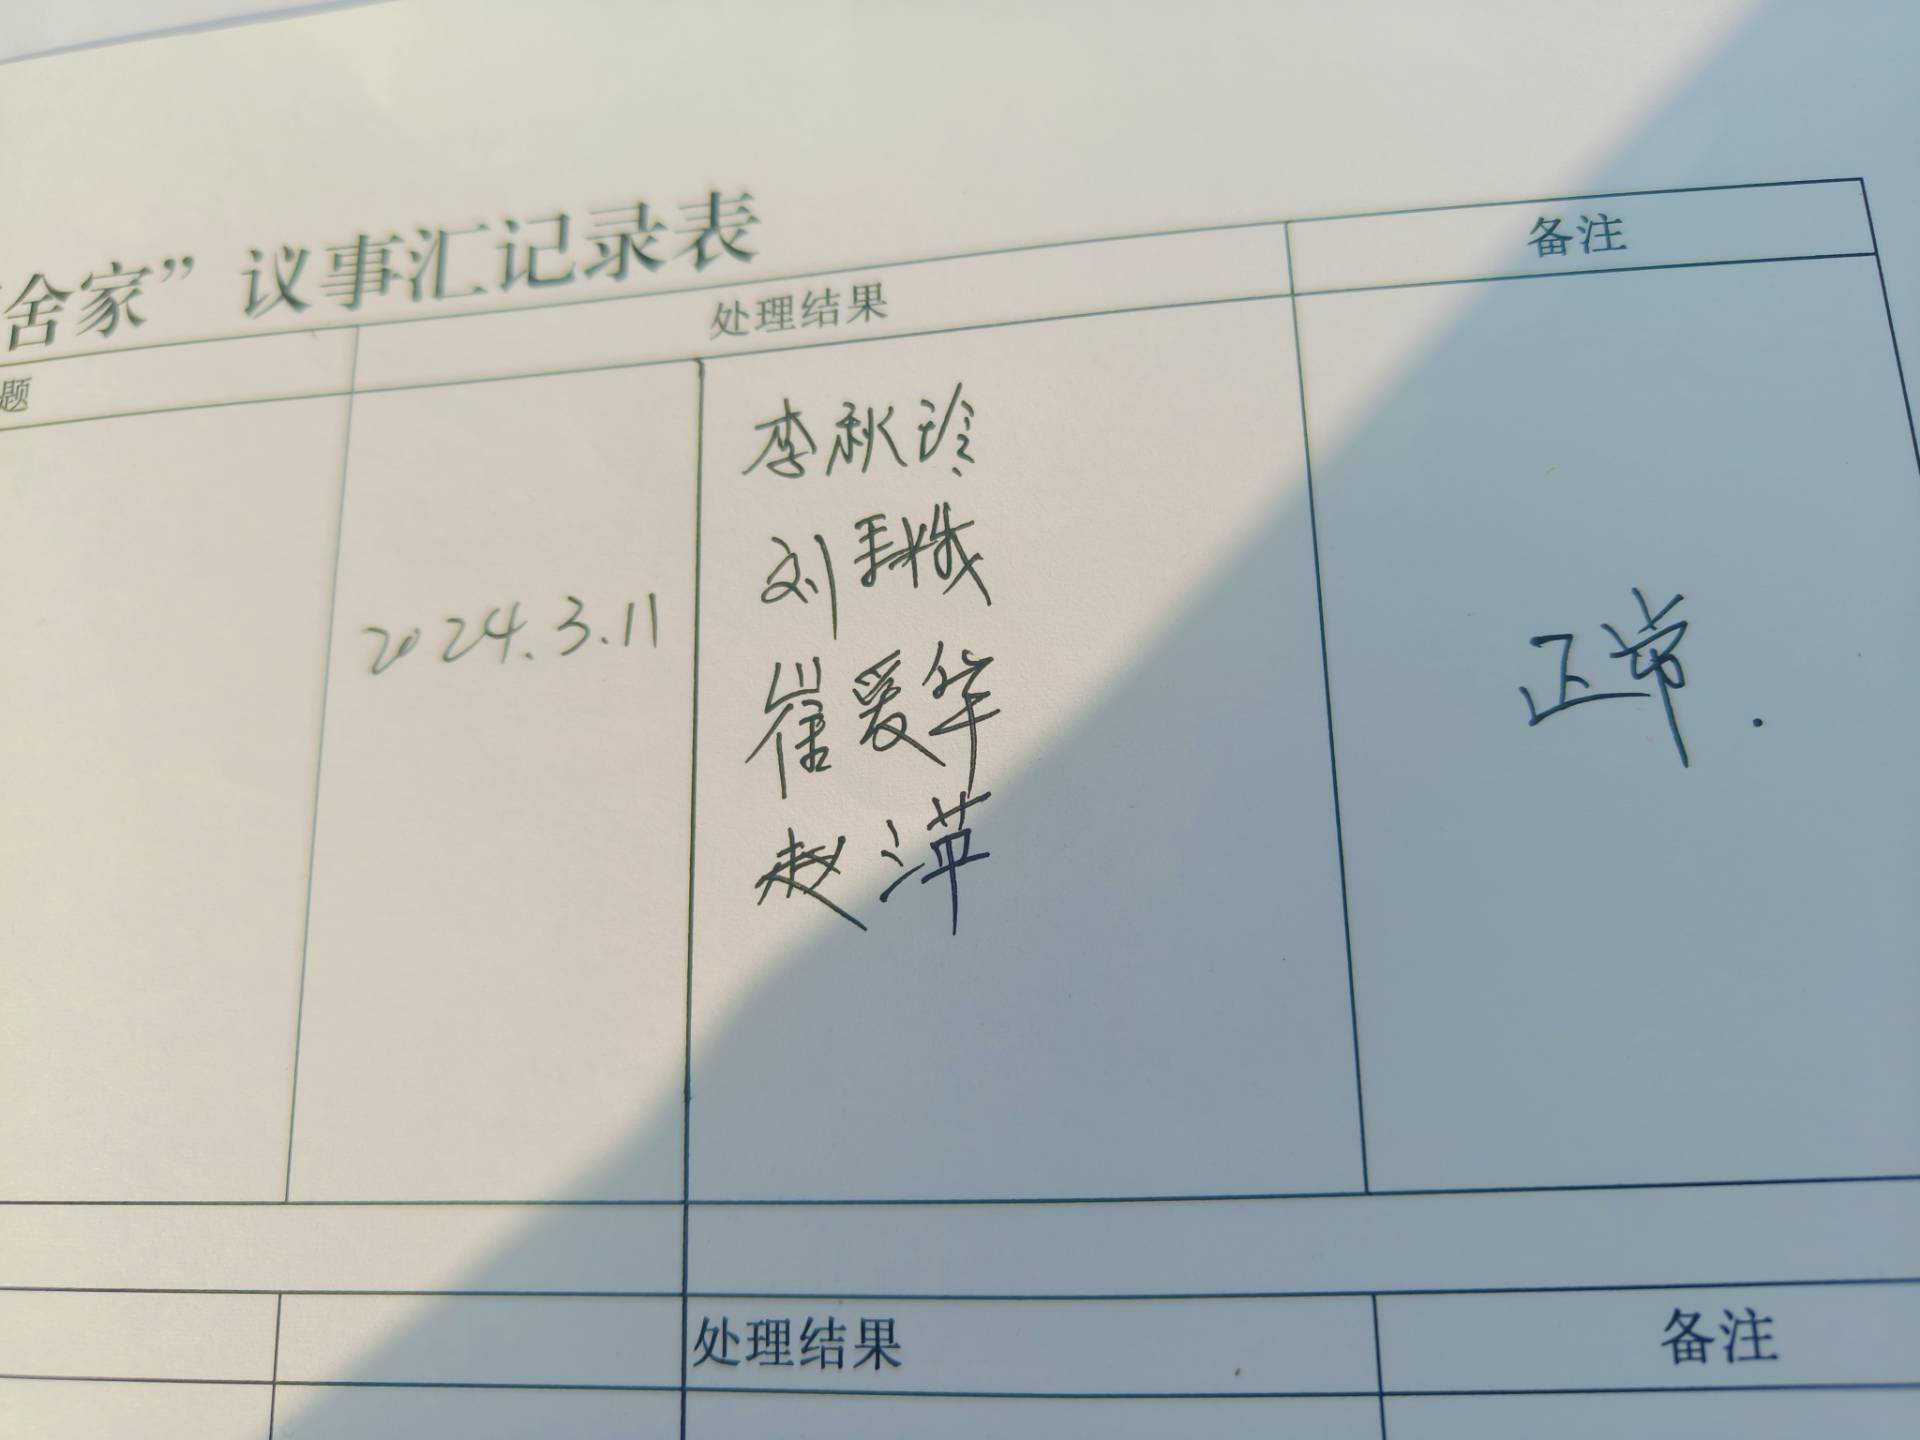 舍家”议事汇记录表
题
处理结果
备注
2024.3.11
李秋玲
刘
崔爱华
赵
正常.
处理结果
备注